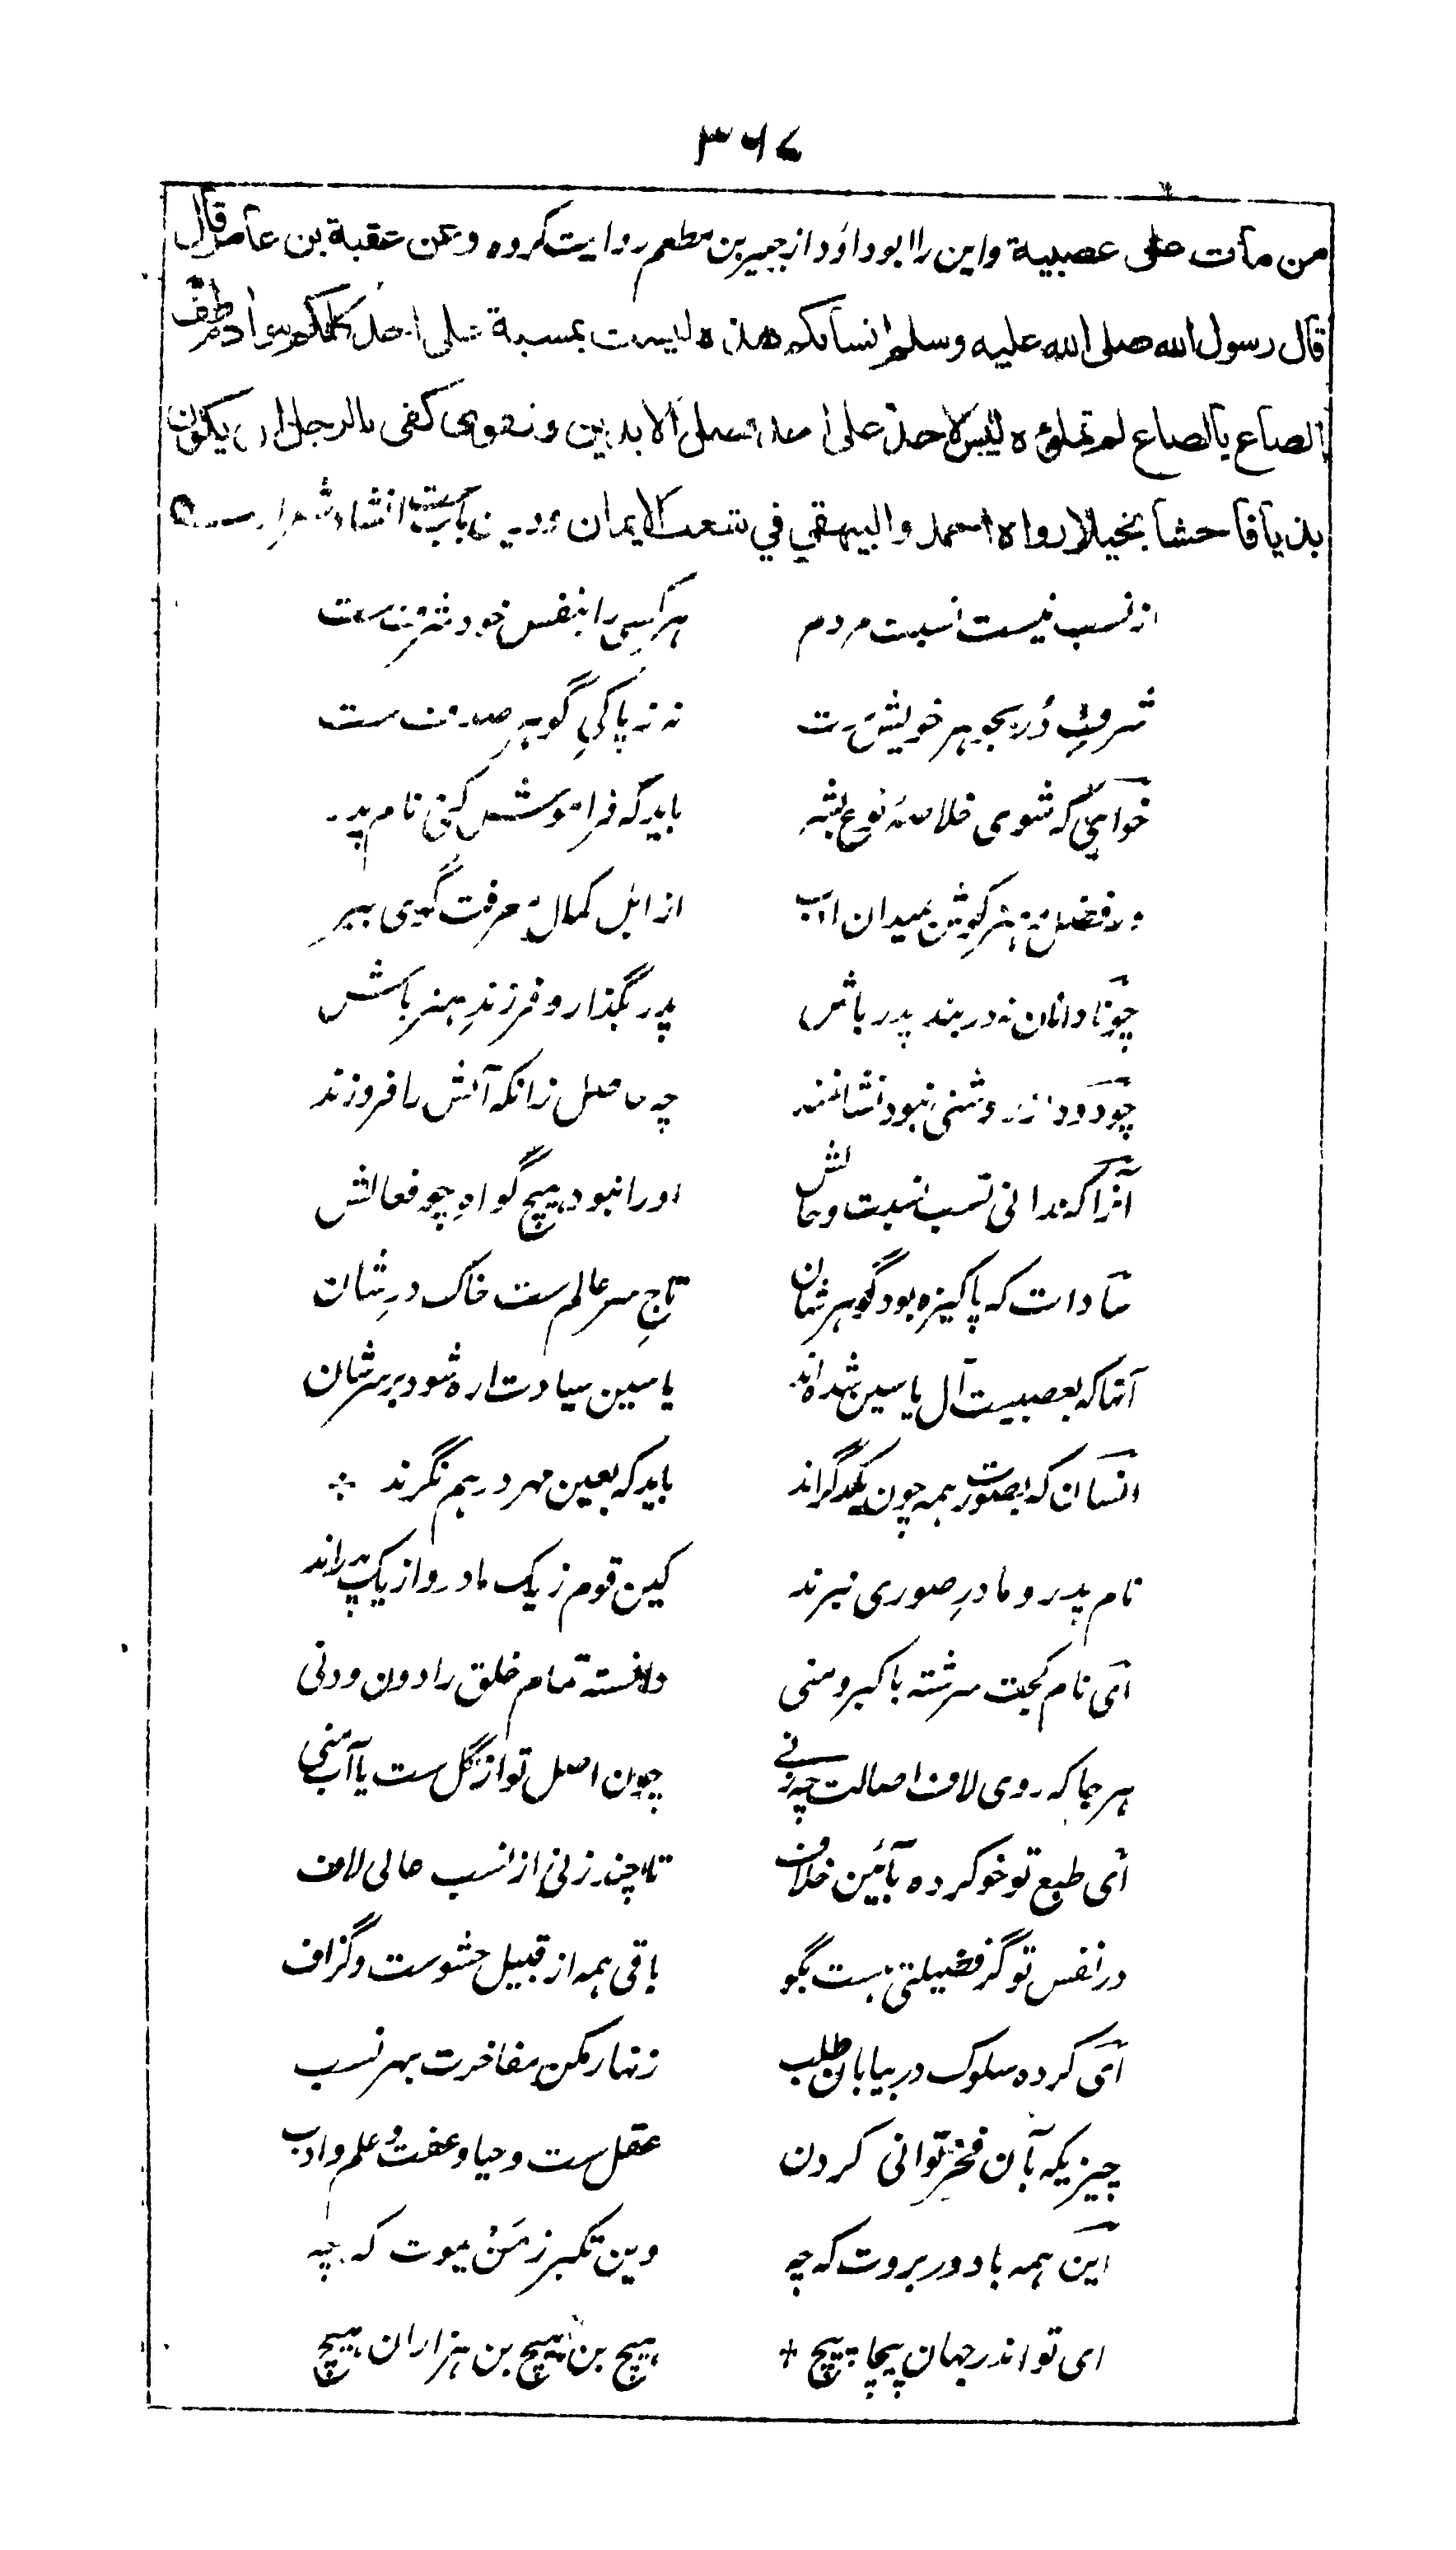 ۳۶۷
من مات على عصبية واین را ابوداؤد از جبیر بن مطعم روایت کرده وعن عقبة بن عامر قال
قال رسول الله صلى الله عليه وسلم انسابكم هذه ليست بمسبة على احد كلكم بنو آدم طف
الصاع بالصاع لم تملؤه ليس لاحد على احد فضل الا بدين وتقوى كفى بالرجل ان يكون
بذيا فاحشا بخيلا رواه احمد والبيهقي في شعب الايمان ودرین باب ست انشاد شعرا
از نسب نیست نسبت مردم هر کسی را بنفس خود شرف ست
شرفِ دُر بجوهر خویش ست نه ز پاکیِ گوهرِ صدف ست
خواهی که شوی خلاصهٔ نوع بشر باید که فراموش کنی نام پدر
در فضل و هنر کوش بمیدان ادب از اهل کمال و معرفت گوی ببر
چو نادانان نه در بند پدر باش پدر بگذار و فرزندِ هنر باش
چو دود از روشنی نبود نشانمند چه حاصل زانکه آتش را فروزند
آنرا که ندانی نسب نسبت و حالش او را نبود هیچ گواهِ چو فعالش
سادات که پاکیزه بود گوهر شان تاجِ سر عالم ست خاک درِ شان
آنها که بعصبیت آل یاسین شده اند یاسین سیادت اره شود بر سر شان
انسان که بصورت همه چون یکدگراند باید که بعین مهر در هم نگرند
نام پدر و مادرِ صوری نبرند کین قوم ز یک مادر و از یک پدراند
ای نام کجت سرشته با کبر و منی دانسته تمام خلق را دون و دنی
هر جا که روی لاف اصالت چه زنی چون اصل تو از گل ست یا آب منی
ای طبع تو خو کرده بآئین خلاف تا چند زنی از نسب عالی لاف
در نفس تو گر فضیلتی هست بگو باقی همه از قبیل حشوست و گزاف
ای کرده سلوک در بیابان طلب زنهار مکن مفاخرت بهر نسب
چیزیکه بآن فخر توانی کردن عقل ست و حیا و عفت و علم و ادب
این همه باد در بروت که چه وین تکبر ز مَن یموت که چه
ای تو اندر جهان پیچا پیچ + هیچ بن هیچ بن هزاران هیچ